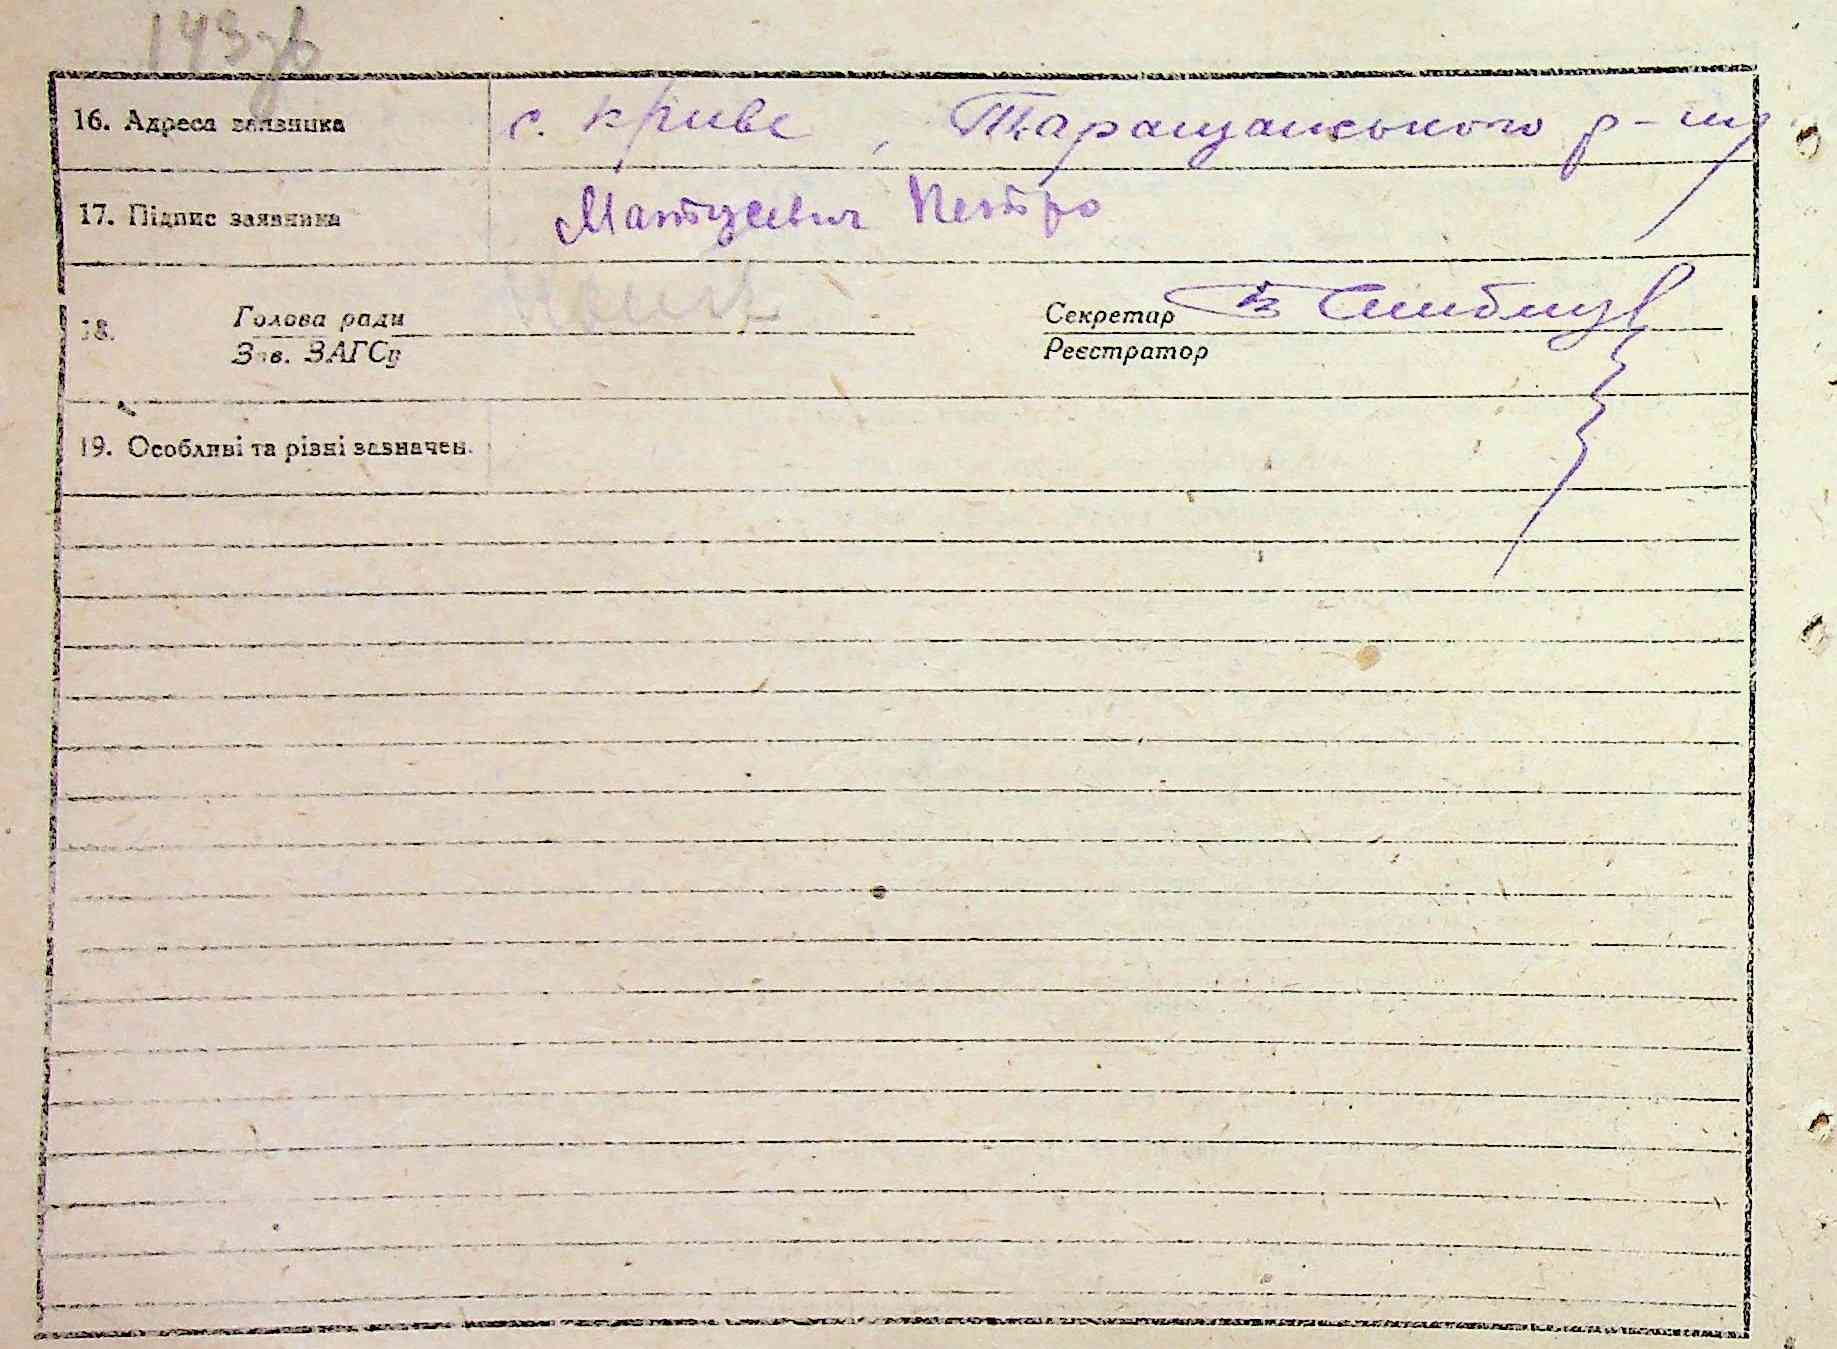 143 зв
16. Адреса заявника с. Криве, Таращанського р-ну
17. Підпис заявника Матусевич Петро
18. Голова ради Секретар
Зав. ЗАГСу Реєстратор
19. Особливі та різні зазначен.